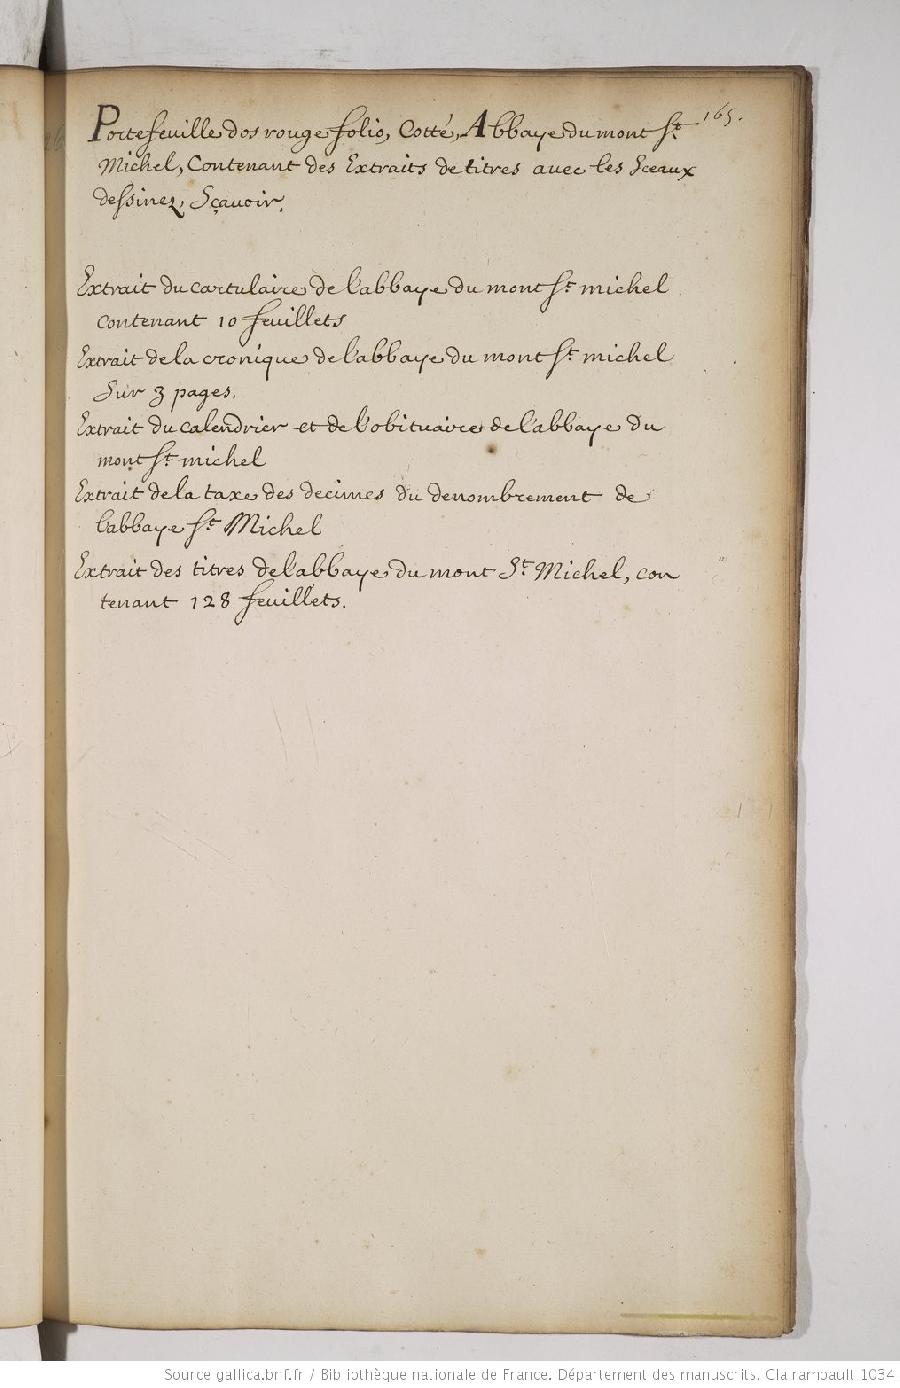 165.
Portefeuille dos rouge folio, Cotté, Abbaye du mont St.
Michel, Contenant des Extraits de titres avec les Sceaux
dessinez, Sçavoir,
Extrait du cartulaire de l'abbaye du mont St. michel
contenant 10 feuillets
Extrait de la cronique de l'abbaye du mont St. michel
Sur 3 pages.
Extrait du calendrier et de l'obituaire de l'abbaye du
mont St. michel
Extrait de la taxe des decimes du denombrement de
l'abbaye St. Michel
Extrait des titres de l'abbaye du mont St. Michel, con
tenant 128 feuillets.
Source gallica.bnf.fr / Bibliothèque nationale de France. Département des manuscrits. Clairambault 1034